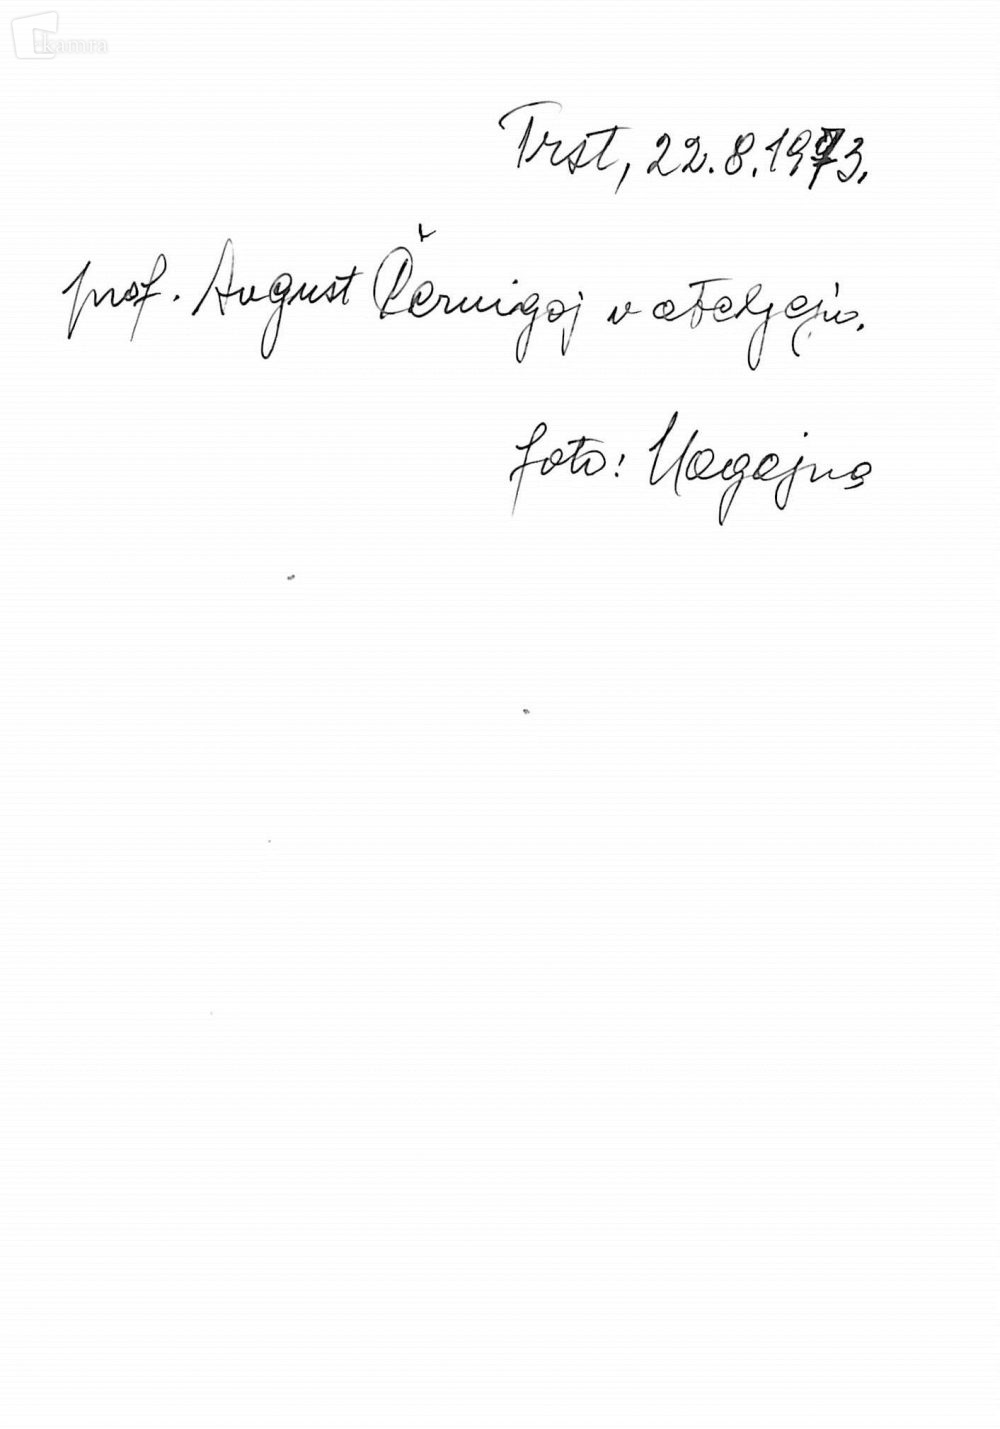 kamra
Trst, 22.8.1973.
prof. August Černigoj v ateljeju.
foto: Magajna